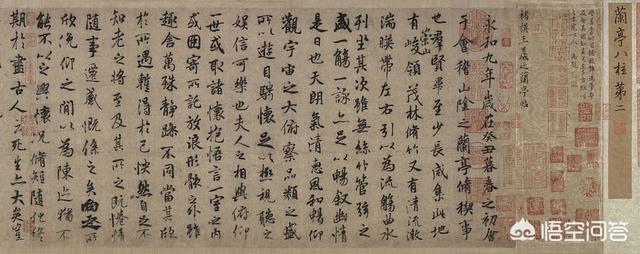 蘭亭八柱第二
褚摸王羲之蘭亭帖
永和九年歲在癸丑暮春之初會
于會稽山陰之蘭亭脩稧事
也羣賢畢至少長咸集此地
有崇山峻領茂林脩竹又有清流激
湍暎帶左右引以為流觴曲水
列坐其次雖無絲竹管弦之
盛一觴一詠亦足以暢敘幽情
是日也天朗氣清惠風和暢仰
觀宇宙之大俯察品類之盛
所以遊目騁懷足以極視聽之
娛信可樂也夫人之相與俯仰
一世或取諸懷抱悟言一室之內
或因寄所託放浪形骸之外雖
趣舍萬殊靜躁不同當其欣
於所遇暫得於己快然自足不
知老之將至及其所之既惓情
隨事遷感慨係之矣向之所
欣俛仰之間以為陳迹猶不
能不以之興懷況脩短隨化終
期於盡古人云死生亦大矣豈
悟空问答